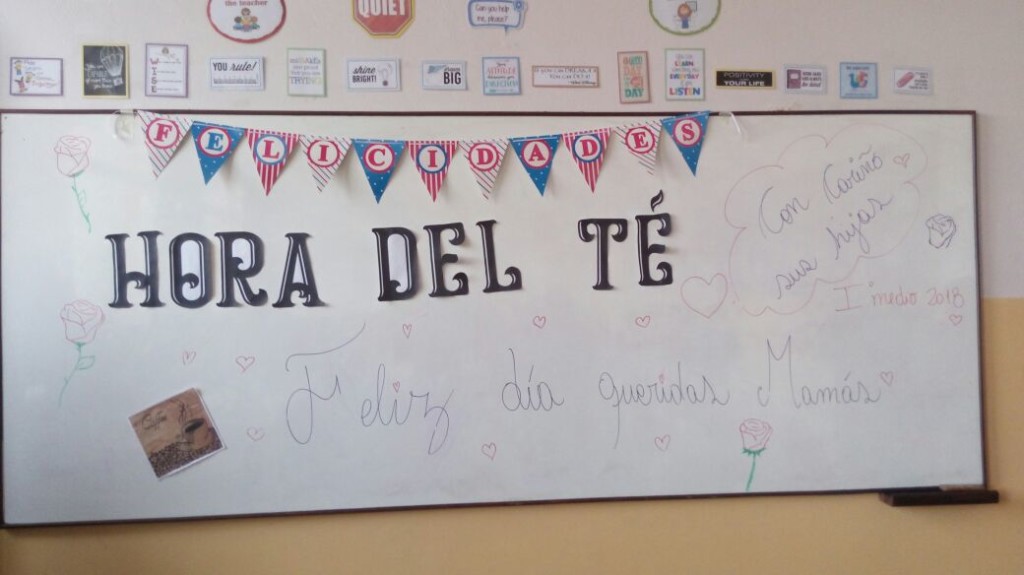 the teacher
QUIET
Can you help me, please?
YOU rule!
shine BRIGHT!
dream BIG
DAY
LISTEN
POSITIVITY
YOUR LIFE
FELICIDADES
HORA DEL TÉ
Con Cariño
sus hijas
I° medio 2018
Feliz día queridas Mamás